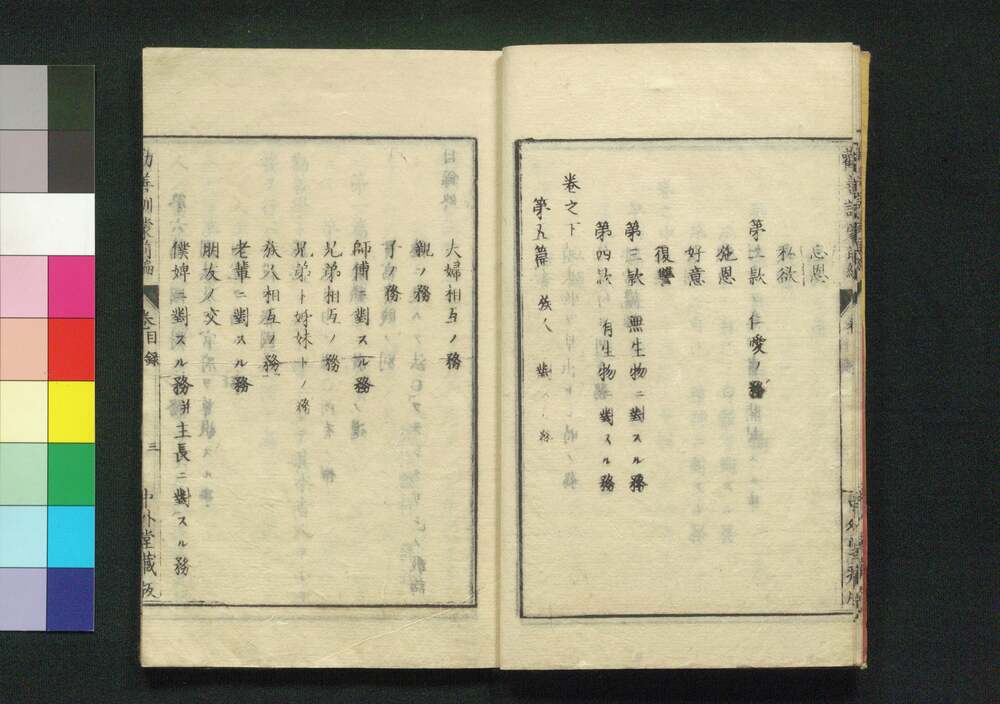 忘恩
私欲
第二款 仁愛ノ務
施恩
好意
復讐
第三款 無生物ニ對スル務
第四款 有生物ニ對スル務
卷之下
第九篇 族人
夫婦相互ノ務
親ノ務
子ノ務
師傅ニ對スル務
兄弟相互ノ務
兄弟ト姉妹トノ務
族人相互ノ務
老輩ニ對スル務
朋友ノ交
僕婢ニ對スル務并主長ニ對スル務
勸善訓蒙前編 卷 目録 三 中外堂藏版